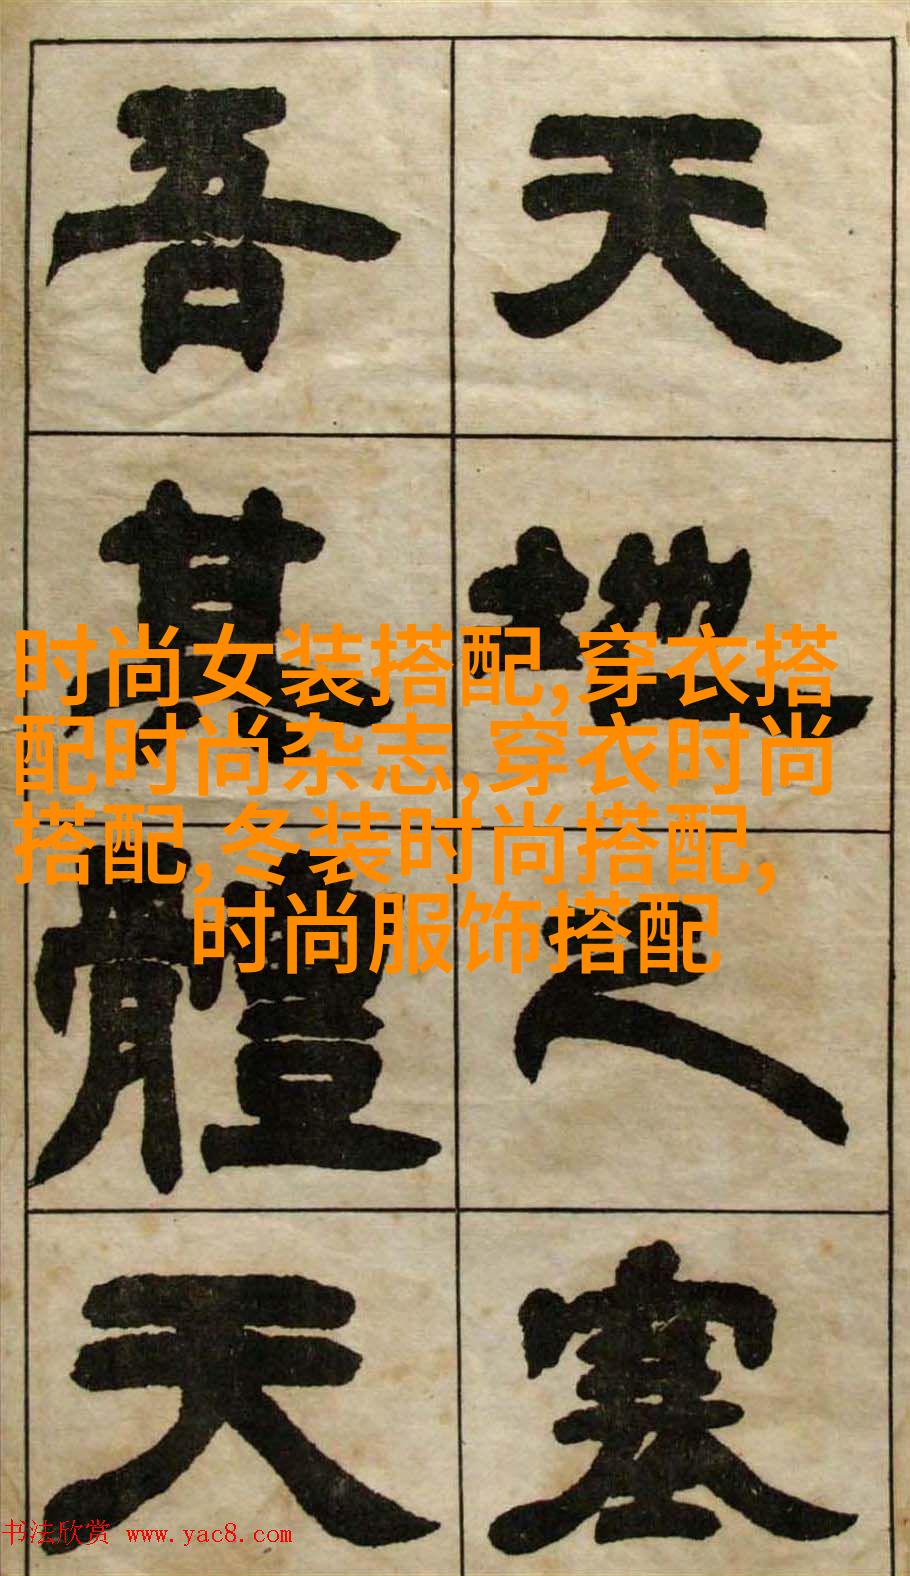 天地之塞
吾其體天
时尚女装搭配,穿衣搭
配时尚杂志,穿衣时尚
搭配,冬装时尚搭配,
时尚服饰搭配
书法欣赏 www.yac8.com